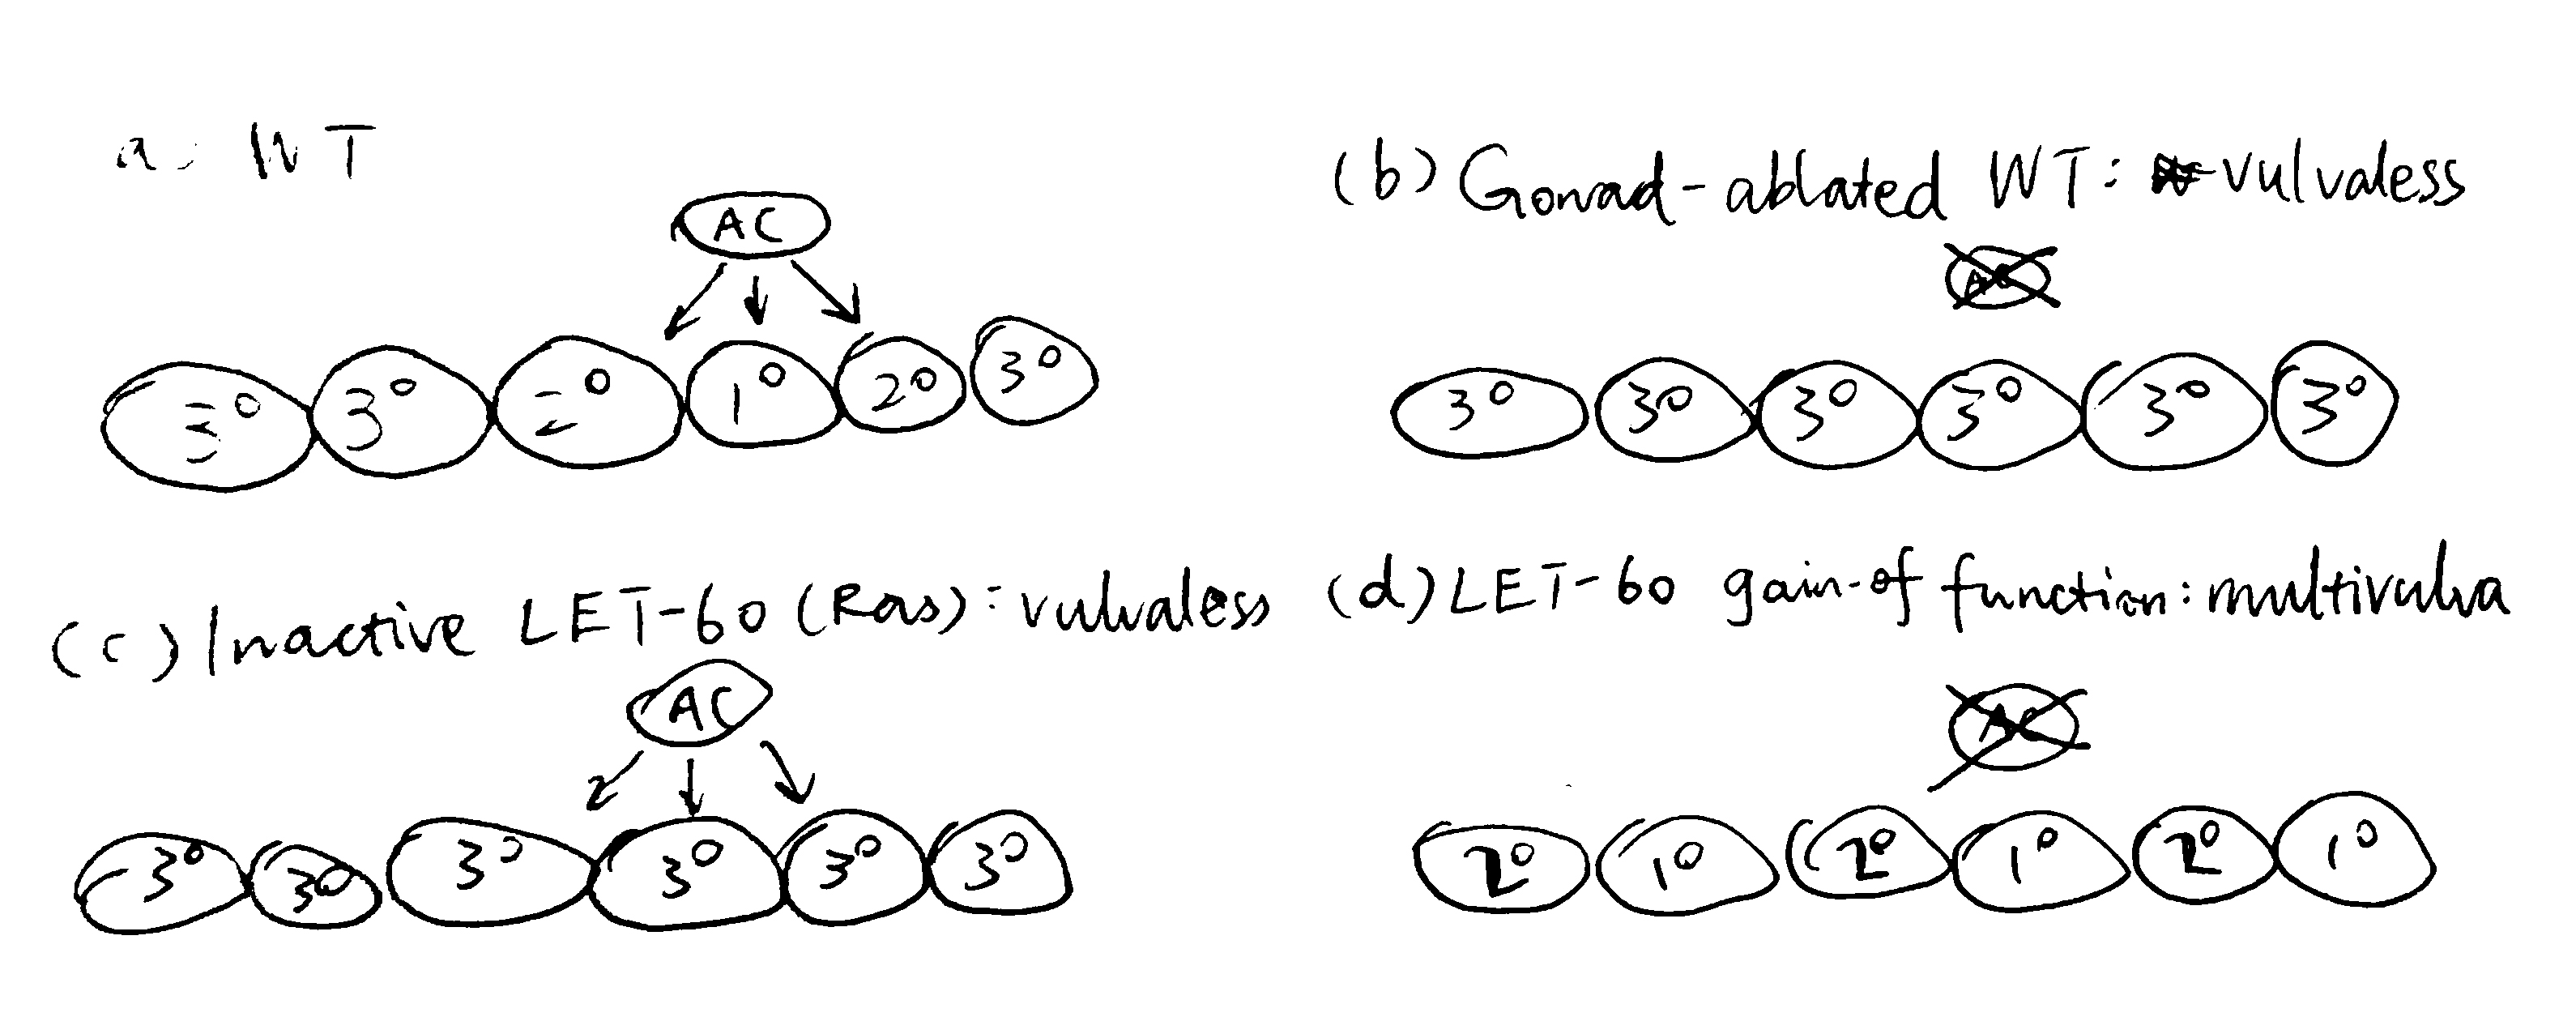 a. WT
AC
3° 3° 2° 1° 2° 3°
(b) Gonad-ablated WT: vulvaless
AC
3° 3° 3° 3° 3° 3°
(c) Inactive LET-60 (Ras): vulvaless
AC
3° 3° 3° 3° 3° 3°
(d) LET-60 gain-of function: multivulva
AC
2° 1° 2° 1° 2° 1°